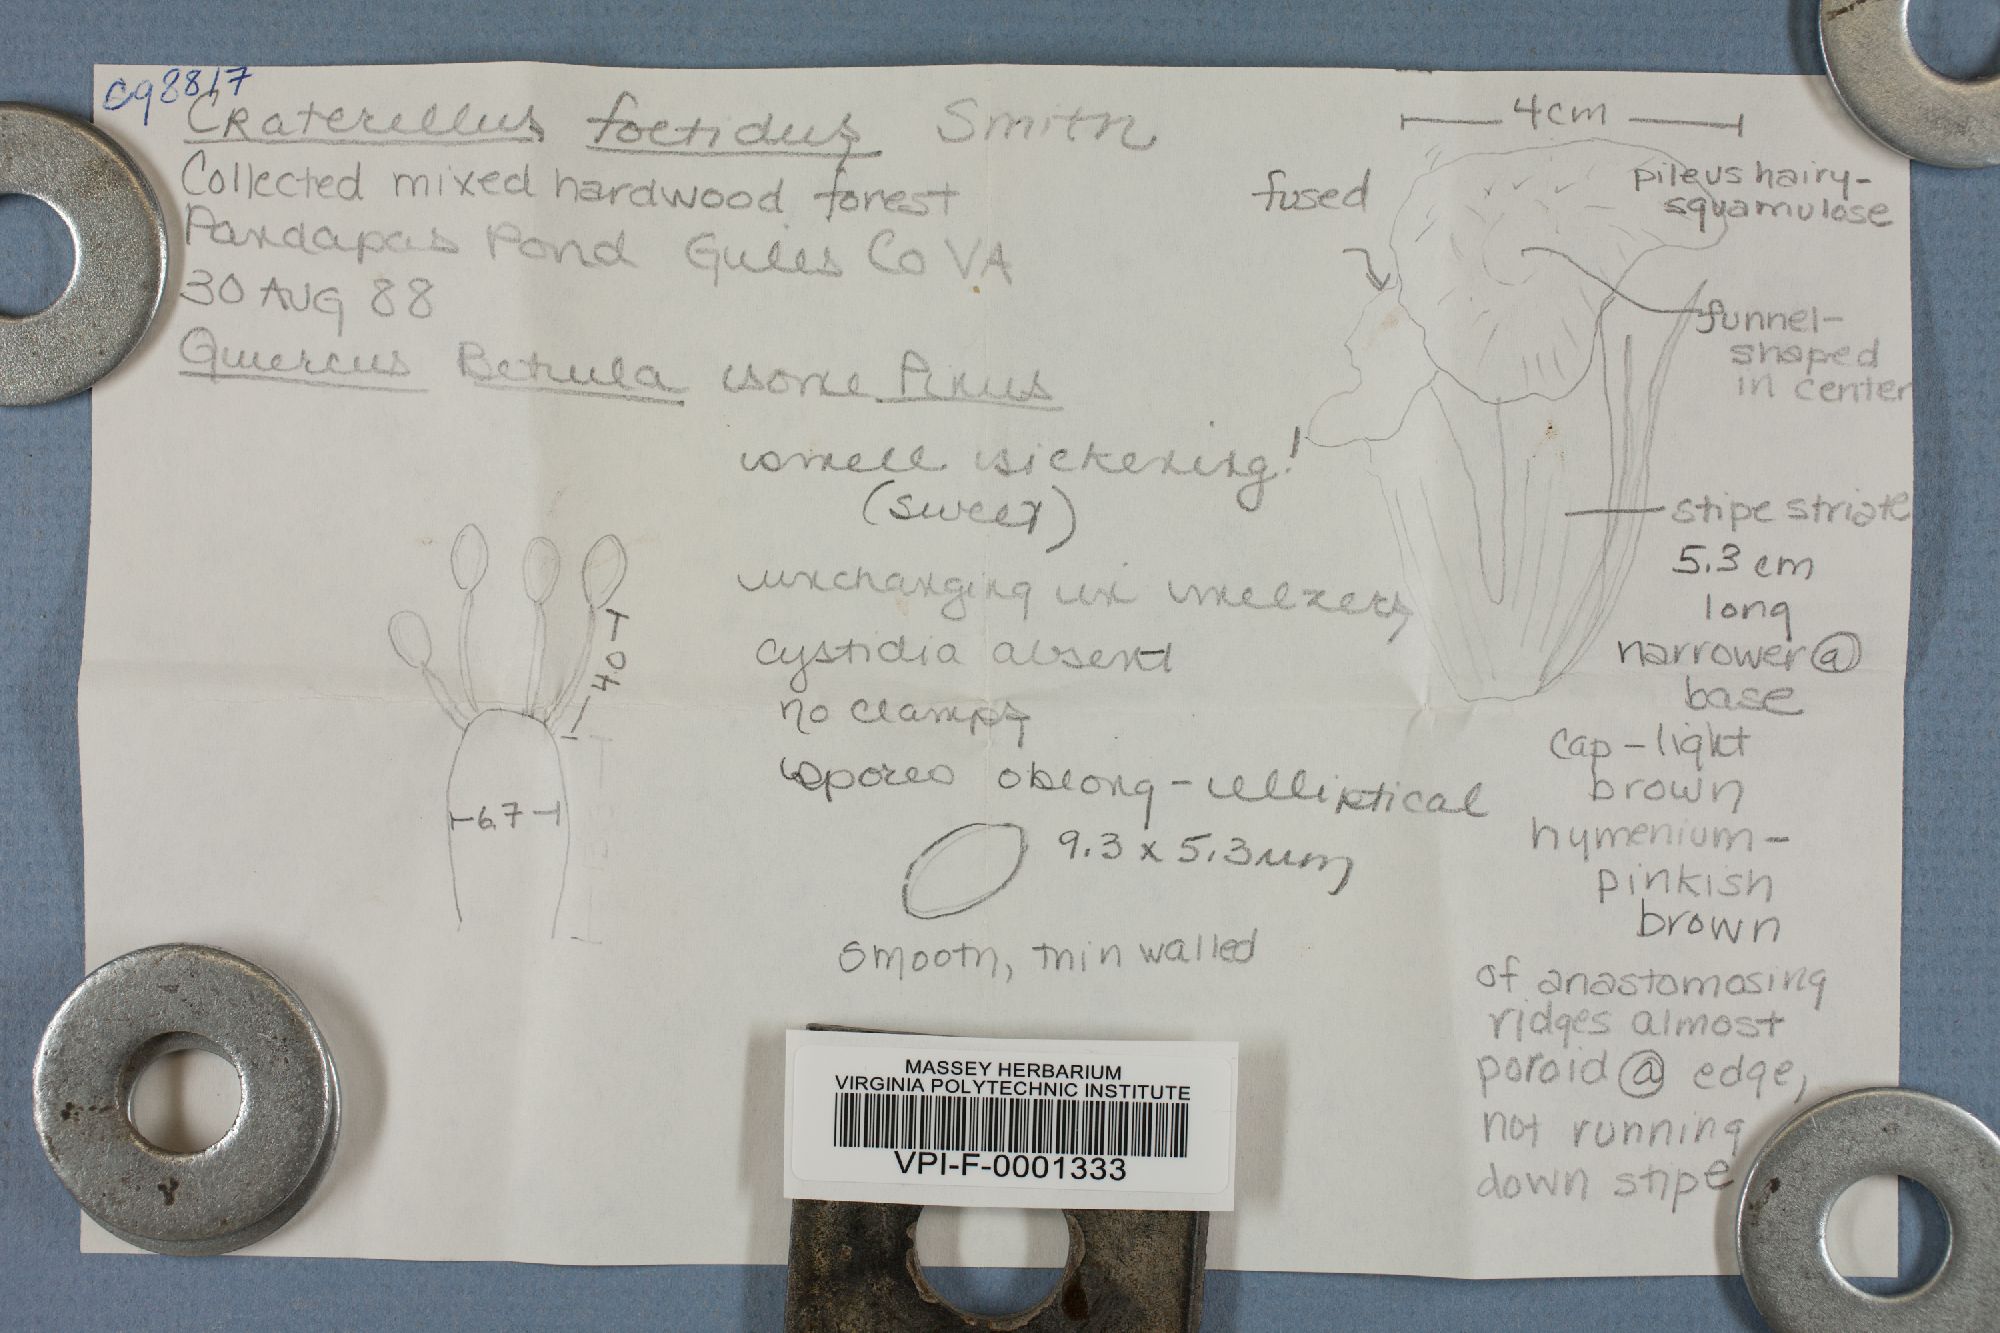 cq8817
Craterellus foetidus Smith
Collected mixed hardwood forest
Pandapas Pond Giles Co VA
30 AUG 88
Quercus Betula some Pinus
smell sickening!
(sweet)
unchanging in
cystidia absent
no clamps
spores oblong-elliptical
9.3 x 5.3 um
smooth, thin walled
4.0
6.7
4cm
fused
pileus hairy-
squamulose
funnel-
shaped
in center
stipe striate
5.3 cm
long
narrower @
base
cap - light
brown
hymenium -
pinkish
brown
of anastomosing
ridges almost
poroid @ edge,
not running
down stipe
MASSEY HERBARIUM
VIRGINIA POLYTECHNIC INSTITUTE
VPI-F-0001333